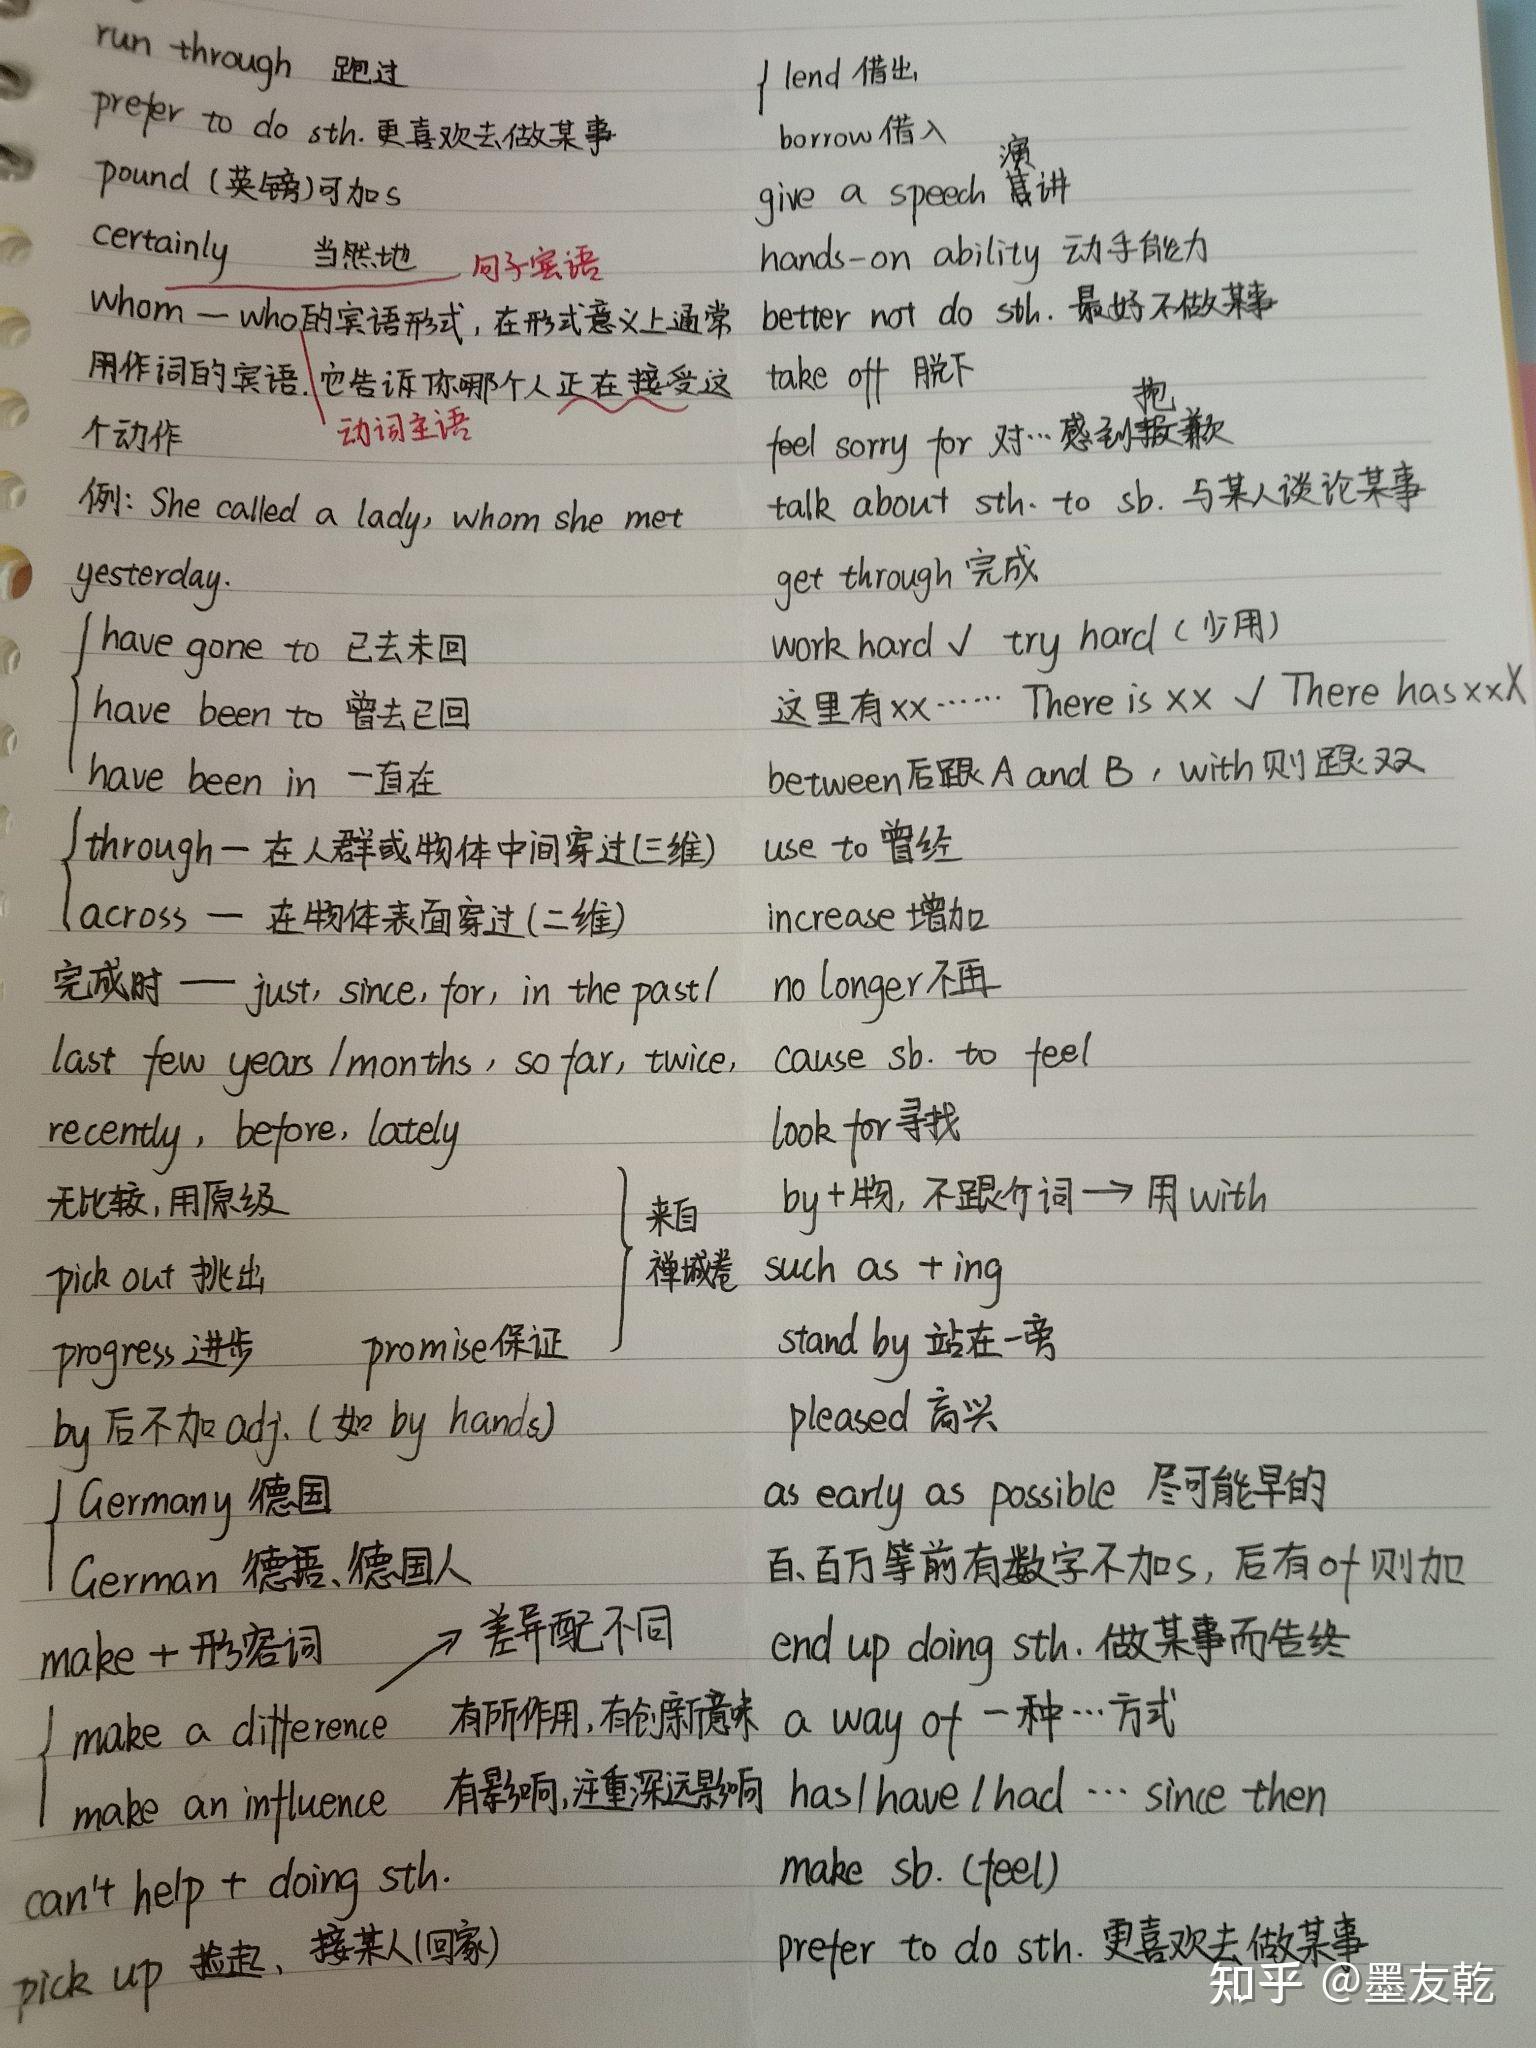 run through 跑过
prefer to do sth. 更喜欢去做某事
pound (英镑)可加s
certainly 当然地
句子宾语
whom — who的宾语形式, 在形式意义上通常
用作词的宾语. 它告诉你哪个人正在接受这
个动作
动词主语
例: She called a lady, whom she met
yesterday.
have gone to 已去未回
have been to 曾去已回
have been in 一直在
through — 在人群或物体中间穿过(三维)
across — 在物体表面穿过(二维)
完成时 — just, since, for, in the past/
last few years/months, so far, twice,
recently, before, lately
无比较, 用原级
pick out 挑出
progress 进步 promise 保证
来自
禅城卷
by 后不加 adj. (如 by hands)
Germany 德国
German 德语、德国人
make + 形容词
差异配不同
make a difference 有所作用, 有创新意味
make an influence 有影响, 注重深远影响
can't help + doing sth.
pick up 捡起、接某人(回家)
lend 借出
borrow 借入
演
give a speech 讲
hands-on ability 动手能力
better not do sth. 最好不做某事
take off 脱下
抱
feel sorry for 对…感到报歉
talk about sth. to sb. 与某人谈论某事
get through 完成
work hard √ try hard (少用)
这里有xx…… There is xx √ There has xx X
between后跟 A and B, with则跟双
use to 曾经
increase 增加
no longer 不再
cause sb. to feel
look for 寻找
by+物, 不跟介词 → 用 with
such as + ing
stand by 站在一旁
pleased 高兴
as early as possible 尽可能早的
百、百万等前有数字不加s, 后有of则加
end up doing sth. 做某事而告终
a way of 一种…方式
has/have/had … since then
make sb. (feel)
prefer to do sth. 更喜欢去做某事
知乎 @墨友乾